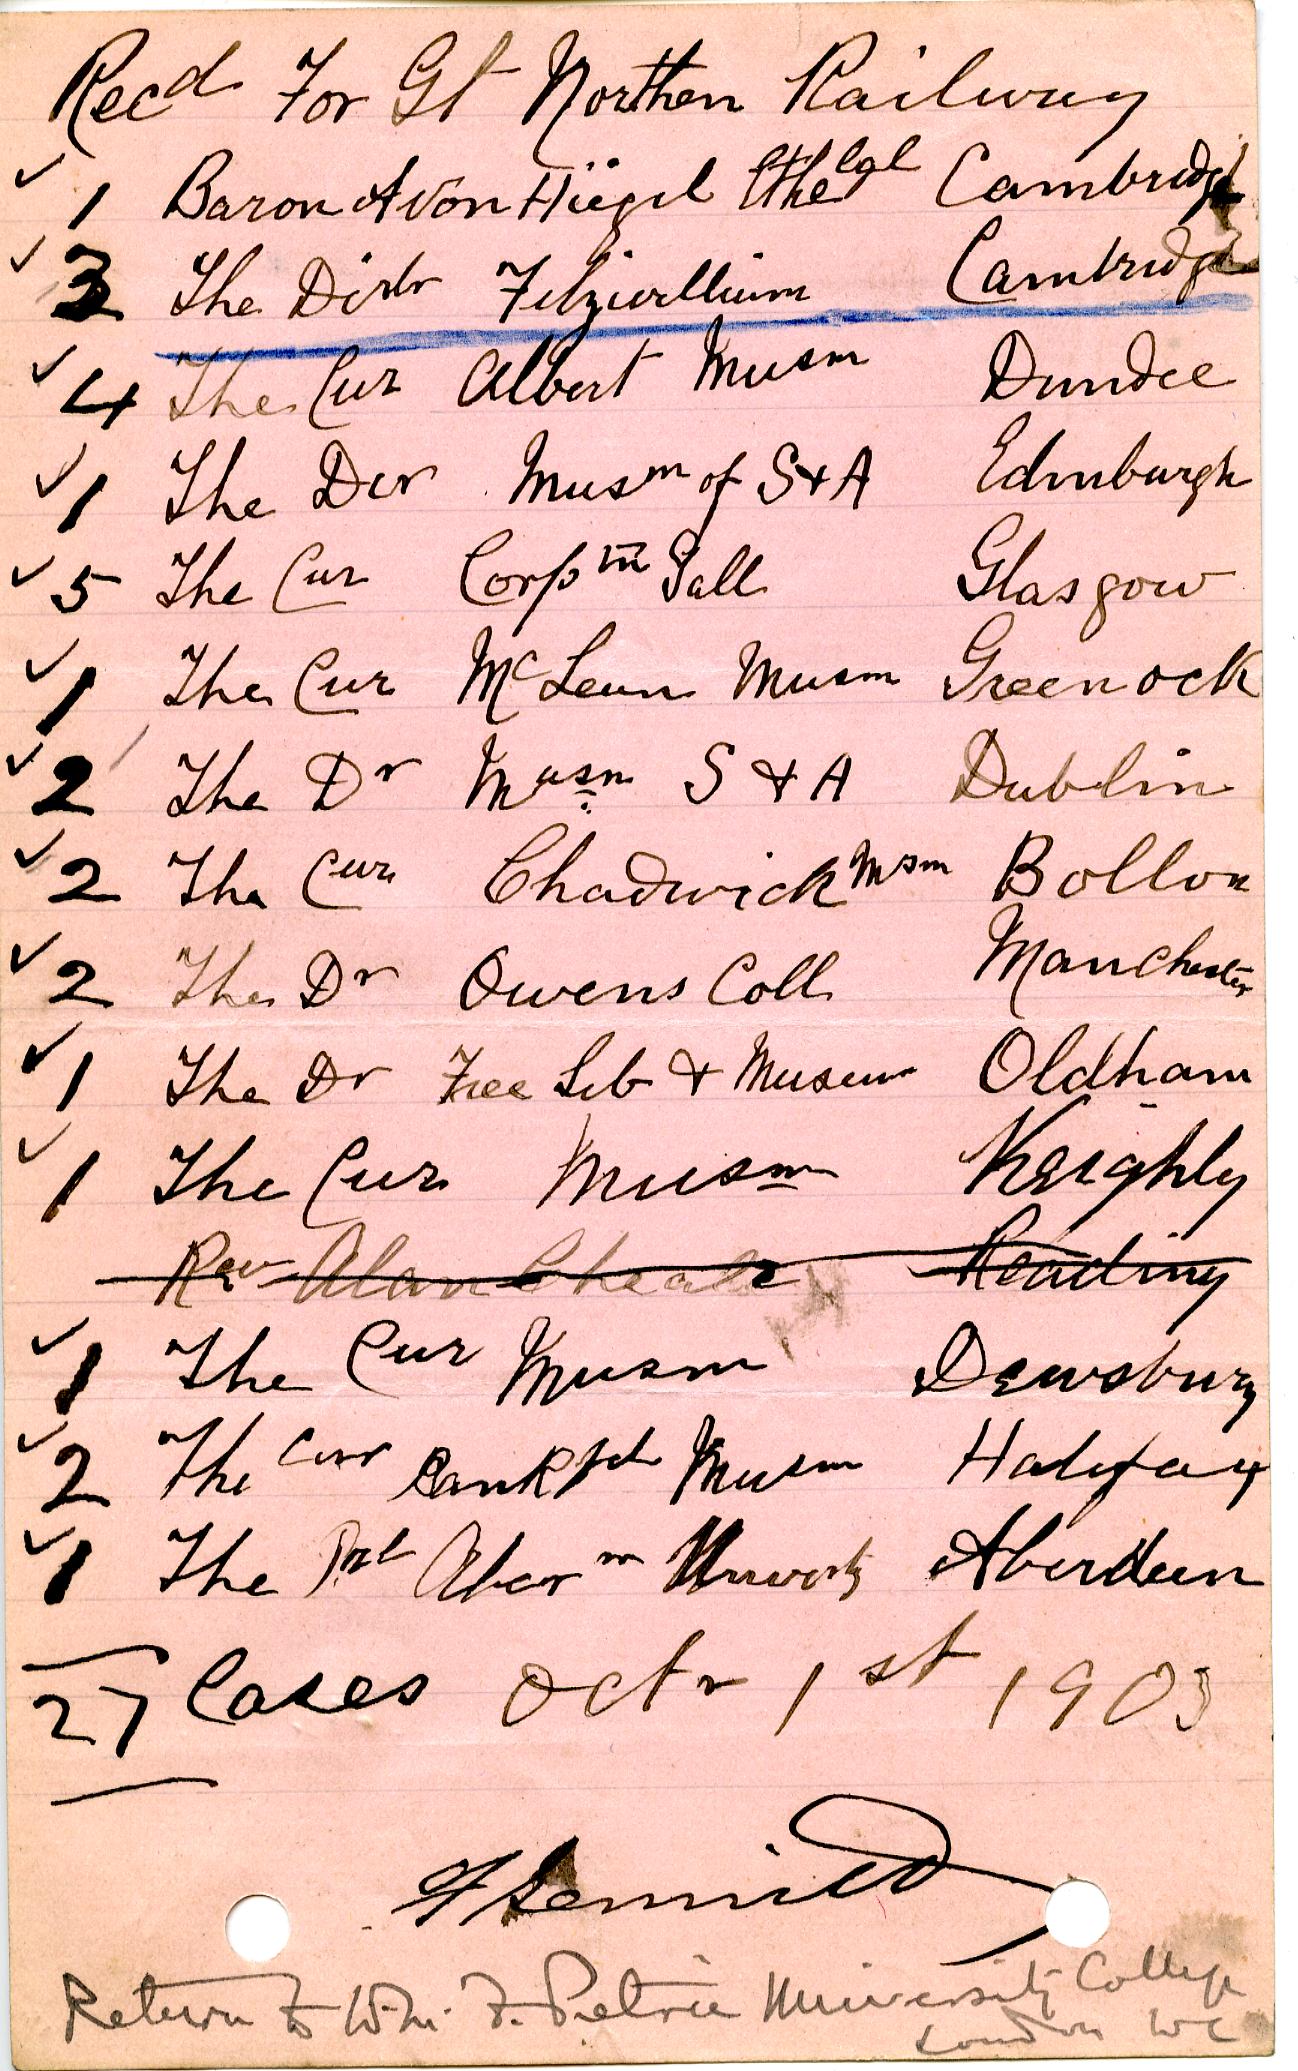 Recd For Gt Northen Railway
✓ 1 Baron A Von Hügel Ethelgl Cambridge
✓ 2 The Dirtr Fitzwillium Cambridge
✓ 4 The Cur Albert Musm Dundee
✓ 1 The Dir Musm of S & A Edinburgh
✓ 5 The Cur Corpn Gall Glasgow
✓ 1 The Cur McLean Musm Greenock
✓ 2 The Dr Musm S & A Dublin
✓ 2 The Cur Chadwick Msm Bolton
✓ 2 The Dr Owens Coll Manchester
✓ 1 The Dr Free Lib & Museum Oldham
✓ 1 The Cur Musm Keighly
Rev Alan Cheales Reading
✓ 1 The Cur Musm Dewsbury
✓ 2 The Curr Musm Halifax
✓ 1 The Aberdeen
27 Cases Octr 1st 1903
Return to Wm. F. Petrie University College
London WC